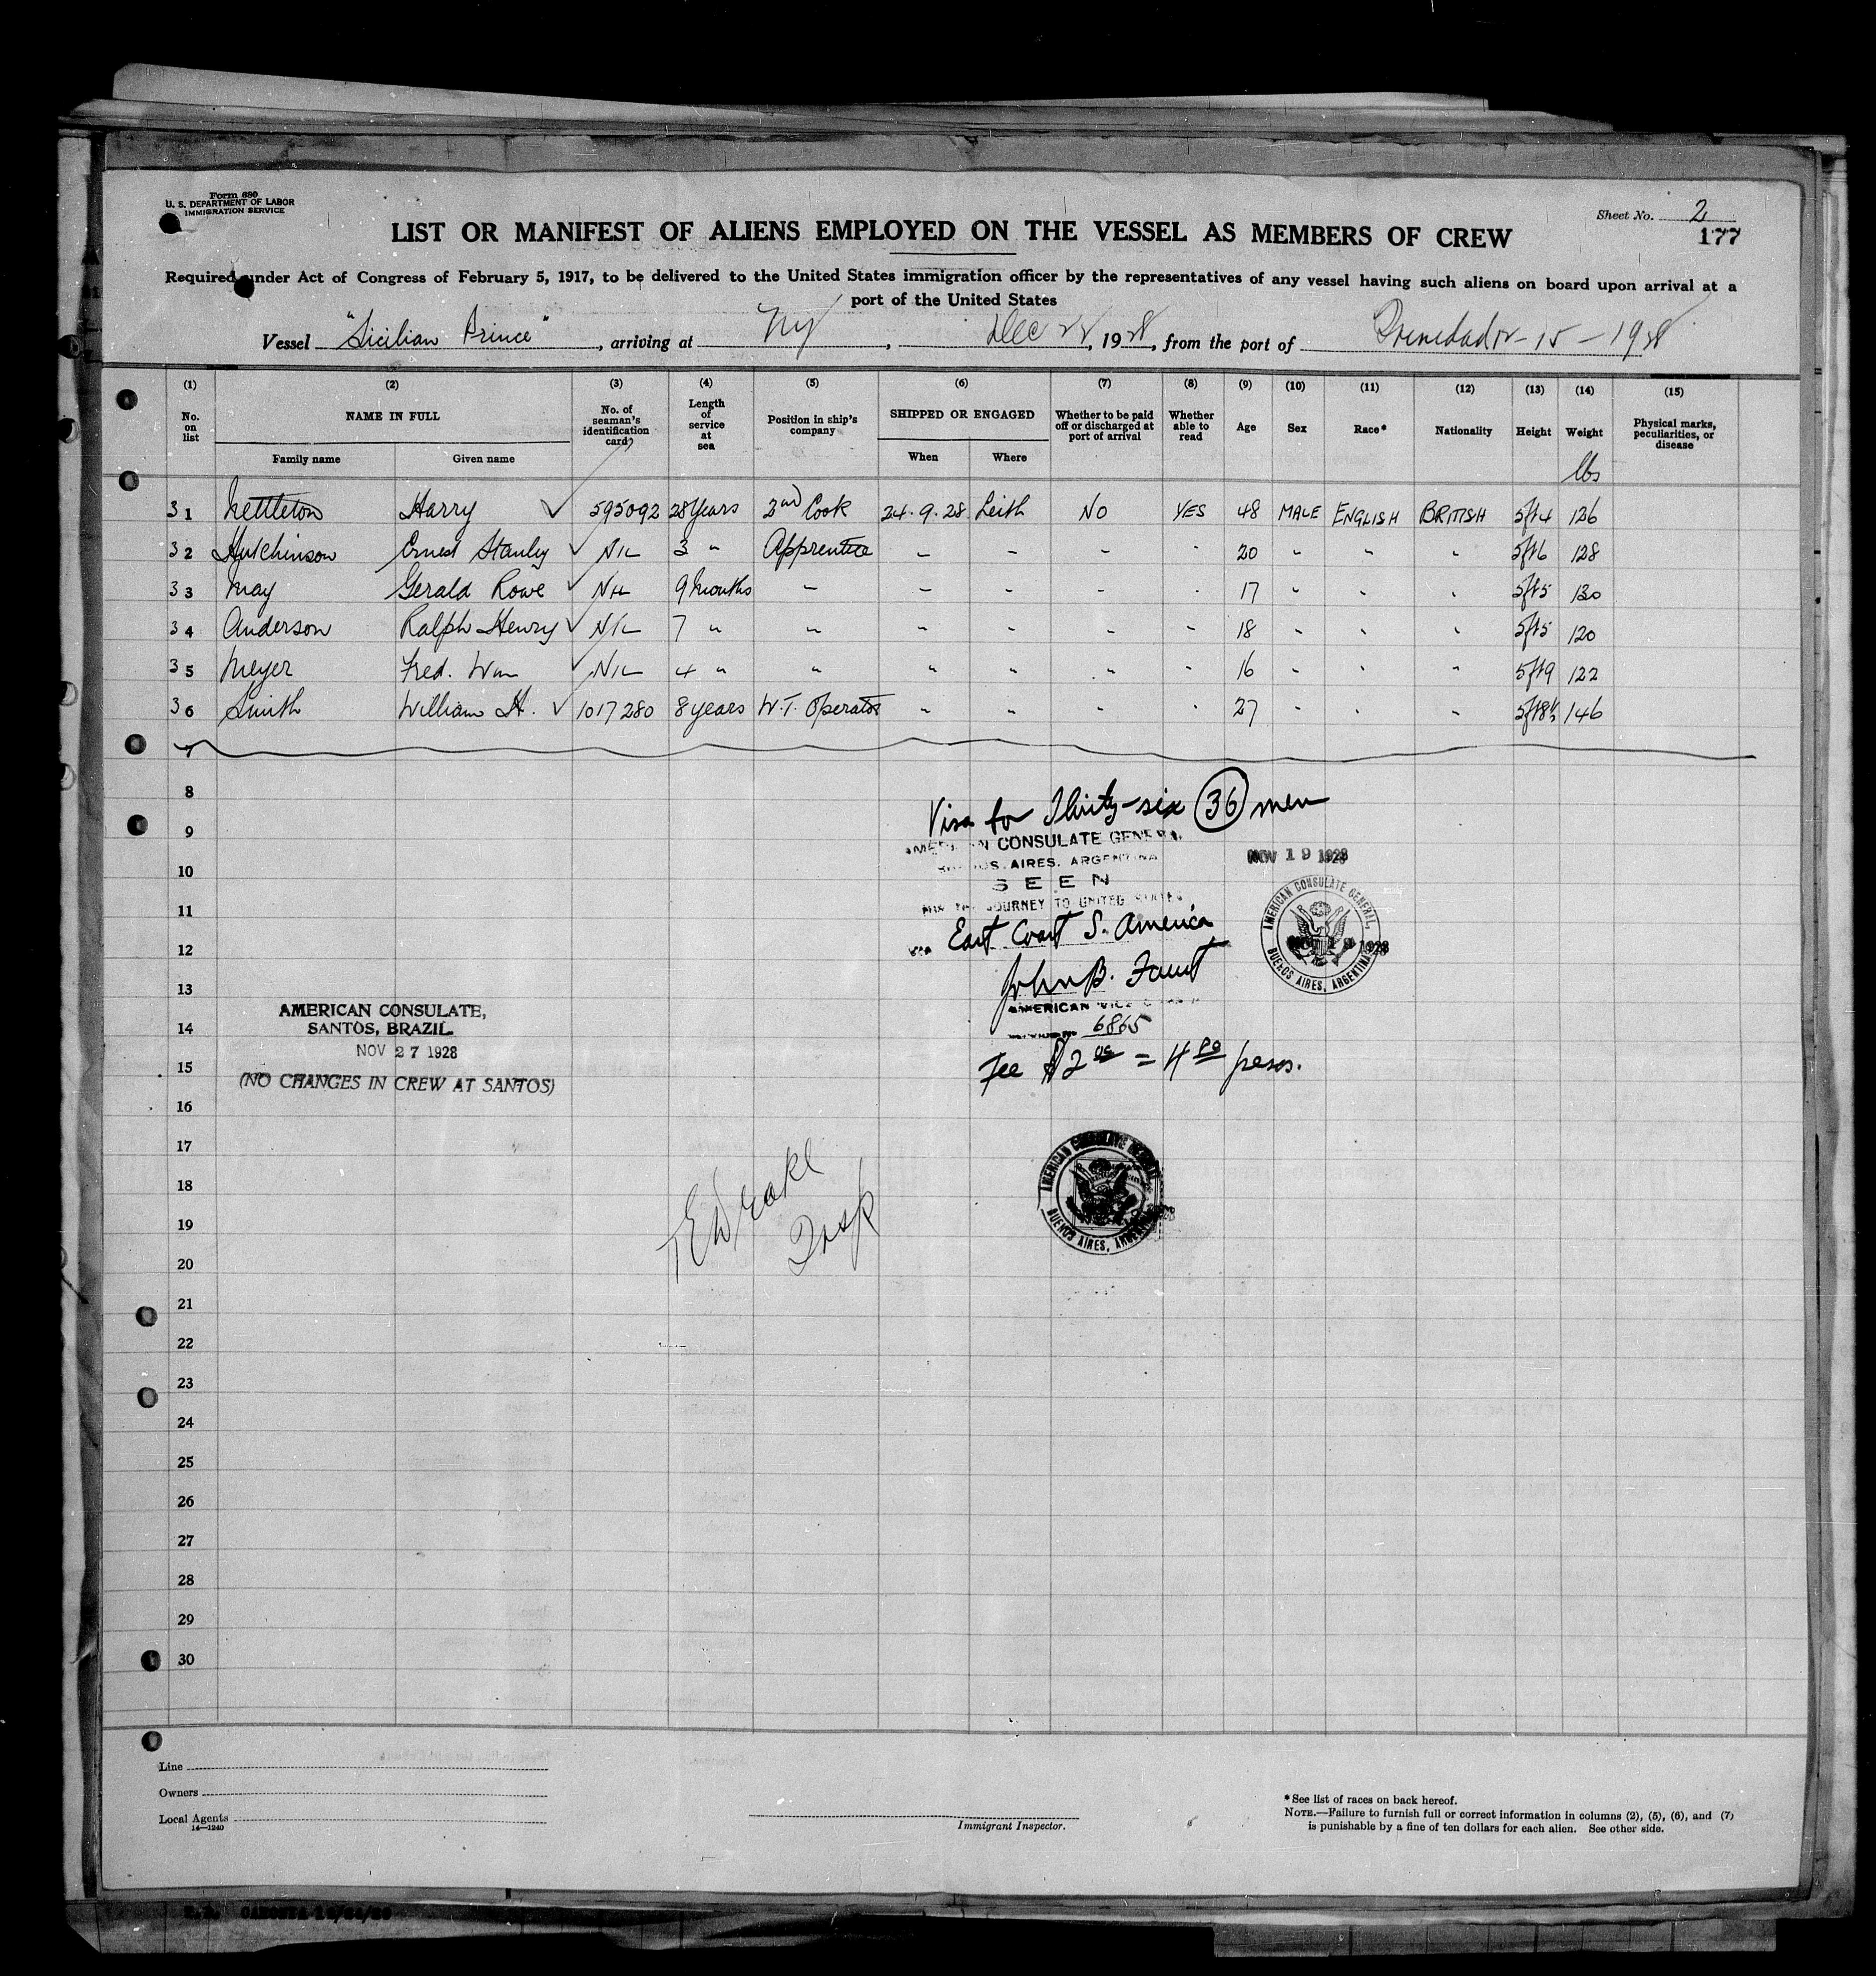 Form 680
U. S. DEPARTMENT OF LABOR
IMMIGRATION SERVICE
Sheet No. 2
177
LIST OR MANIFEST OF ALIENS EMPLOYED ON THE VESSEL AS MEMBERS OF CREW
Required under Act of Congress of February 5, 1917, to be delivered to the United States immigration officer by the representatives of any vessel having such aliens on board upon arrival at a
port of the United States
Vessel "Sicilian Prince", arriving at NY, Dec 22, 1928, from the port of Trinidad 12-15-1928
(1) (2) (3) (4) (5) (6) (7) (8) (9) (10) (11) (12) (13) (14) (15)
No. on list NAME IN FULL No. of seaman's identification card Length of service at sea Position in ship's company SHIPPED OR ENGAGED Whether to be paid off or discharged at port of arrival Whether able to read Age Sex Race* Nationality Height Weight Physical marks, peculiarities, or disease
Family name Given name When Where lbs
31 Nettleton Harry ✓ 595092 28 Years 2nd Cook 24.9.28 Leith NO YES 48 MALE ENGLISH BRITISH 5ft4 136
32 Hutchinson Ernest Stanley ✓ NIL 3 " Apprentice - - - - 20 " " " 5ft6 128
33 May Gerald Rowe ✓ NIL 9 Months - - - - - 17 " " " 5ft5 130
34 Anderson Ralph Henry ✓ NIL 7 " " " " " " 18 " " " 5ft5 120
35 Meyer Fred. Wm ✓ NIL 4 " " " " " " 16 " " " 5ft9 122
36 Smith William H. ✓ 1017280 8 years W.T. Operator " " " " 27 " " " 5ft8½ 146
7
8
Visa for Thirty-six (36) men
9
AMERICAN CONSULATE GENERAL
NOV 19 1928
BUENOS AIRES, ARGENTINA
10
SEEN
FOR THE JOURNEY TO UNITED STATES
11
AMERICAN CONSULATE GENERAL, BUENOS AIRES, ARGENTINA
NOV 19 1928
via East Coast S. America
12
John B. Faust
13
AMERICAN CONSULATE,
SANTOS, BRAZIL.
AMERICAN VICE CONSUL
14
6865
NOV 27 1928
15
Fee $2 00 = 4 80 pesos.
(NO CHANGES IN CREW AT SANTOS)
16
17
AMERICAN CONSULATE GENERAL
BUENOS AIRES, ARGENTINA
18
Drake
Insp
19
20
21
22
23
24
25
26
27
28
29
30
Line
Owners
Local Agents
14—1240
Immigrant Inspector.
*See list of races on back hereof.
NOTE.—Failure to furnish full or correct information in columns (2), (5), (6), and (7)
is punishable by a fine of ten dollars for each alien. See other side.